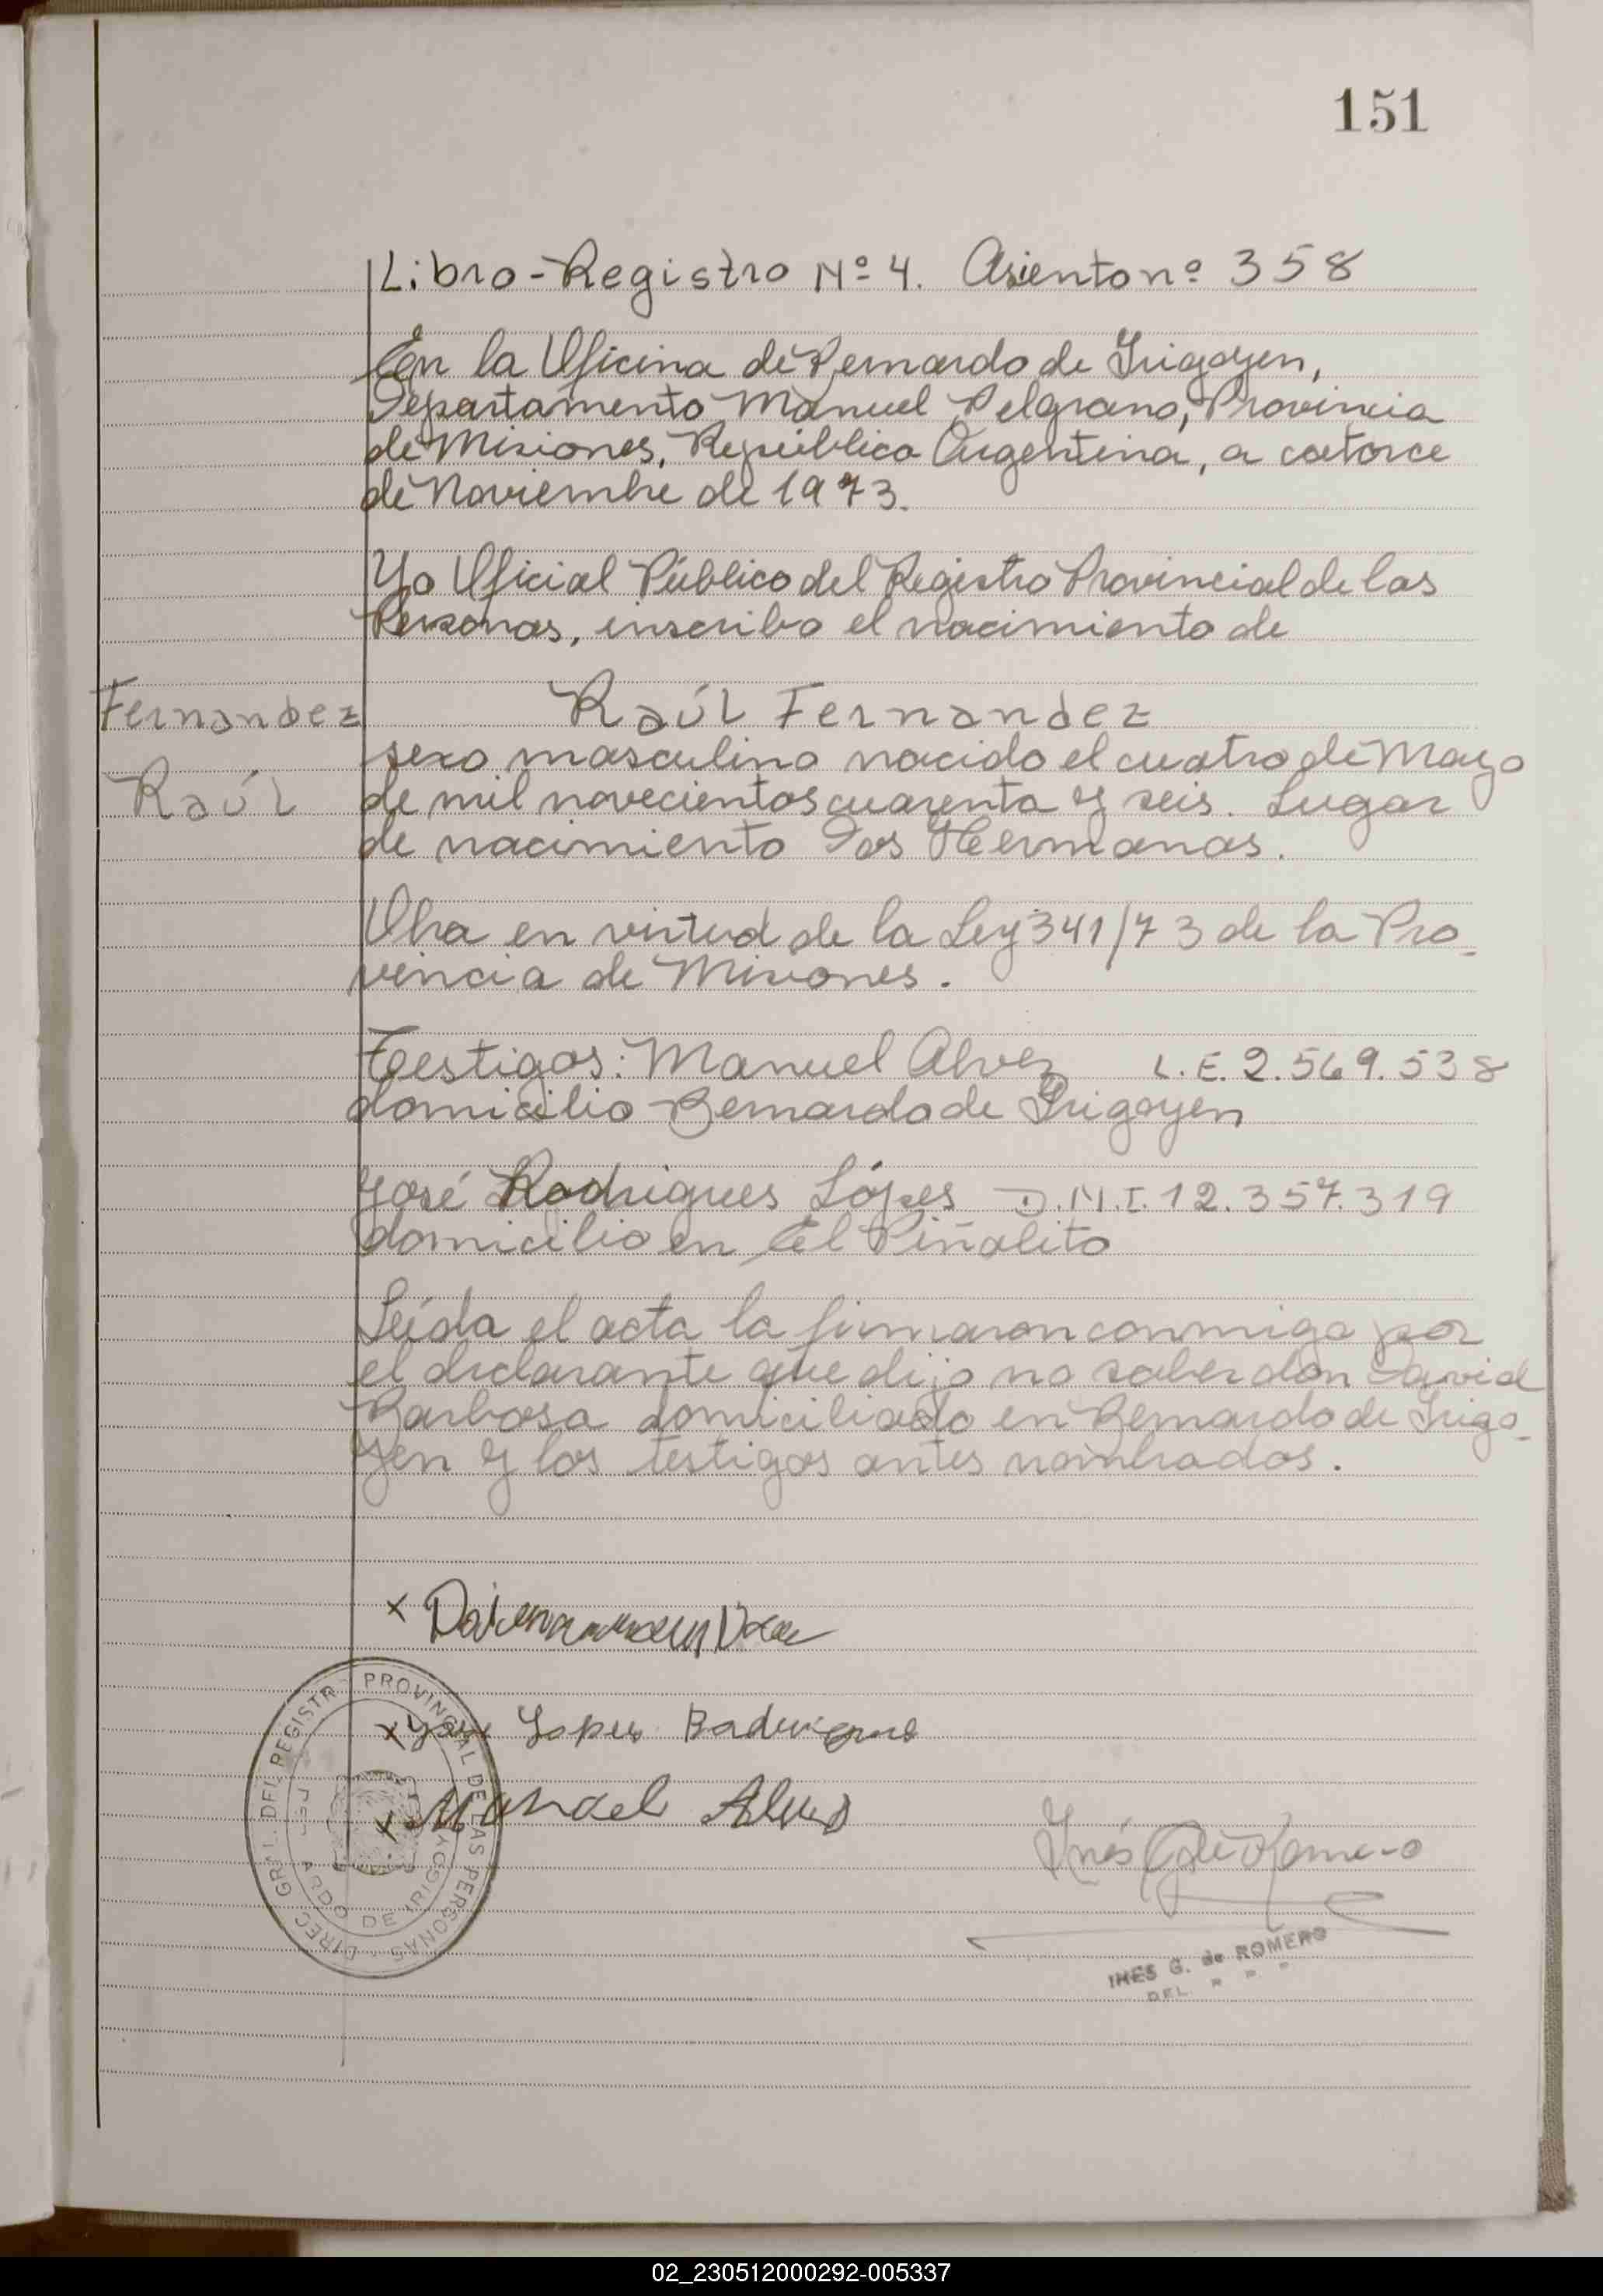 151
Libro-Registro Nº 4. Asiento nº 358
En la Oficina de Bernardo de Irigoyen,
Departamento Manuel Belgrano, Provincia
de Misiones, República Argentina, a catorce
de Noviembre de 1973.
Yo Oficial Público del Registro Provincial de las
Personas, inscribo el nacimiento de
Fernandez
Raúl Fernandez
sexo masculino nacido el cuatro de Mayo
Raúl
de mil novecientos cuarenta y seis. Lugar
de nacimiento Dos Hermanas.
Obra en virtud de la Ley 341/73 de la Pro-
vincia de Misiones.
Testigos: Manuel Alvez L.E. 2.569.538
domicilio Bernardo de Irigoyen
José Rodrigues Lópes D.N.I. 12.357.319
domicilio en El Piñalito
Leída el acta la firmaron conmigo por
el declarante que dijo no saber don David
Barbosa domiciliado en Bernardo de Irigo-
yen y los testigos antes nombrados.
x
x José Lopes Rodrigues
x Manuel Alves
Inés G de Romero
INES G. de ROMERO
DEL. " " "
DIREC. GRL. DEL REGISTR PROVINCIAL DE LAS PERSONAS
ARDO DE IRIGOY
02_230512000292-005337